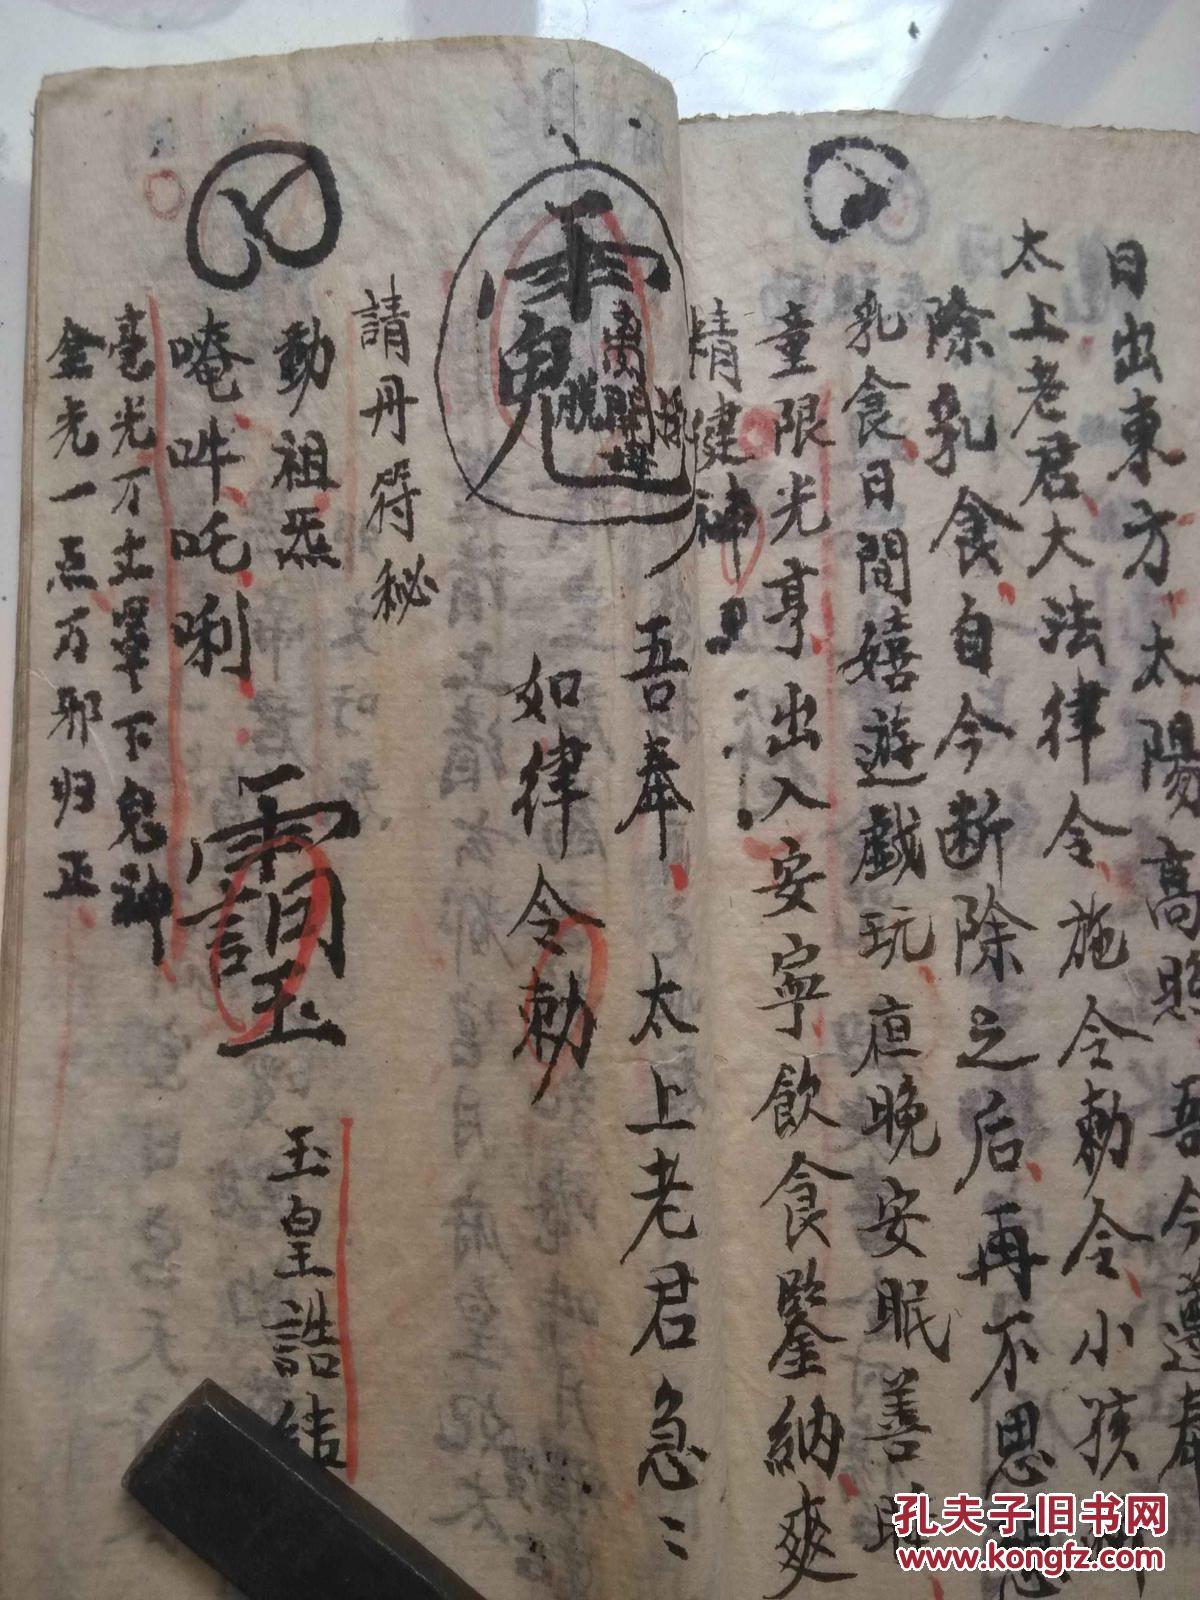 日出東方太陽高照吾今遵奉
太上老君大法律令施令勅令小孩
除乳食自今断除之后再不思
乳食日間嬉遊戯玩夜晚安眠善
童限光亨出入安寧飲食鑒納爽
精健神
吾奉太上老君急
如律令勅
請丹符秘
動祖炁
玉皇誥
唵吽吒唎
毫光万丈罩下鬼神
金光一点万邪归正
孔夫子旧书网
www.kongfz.com